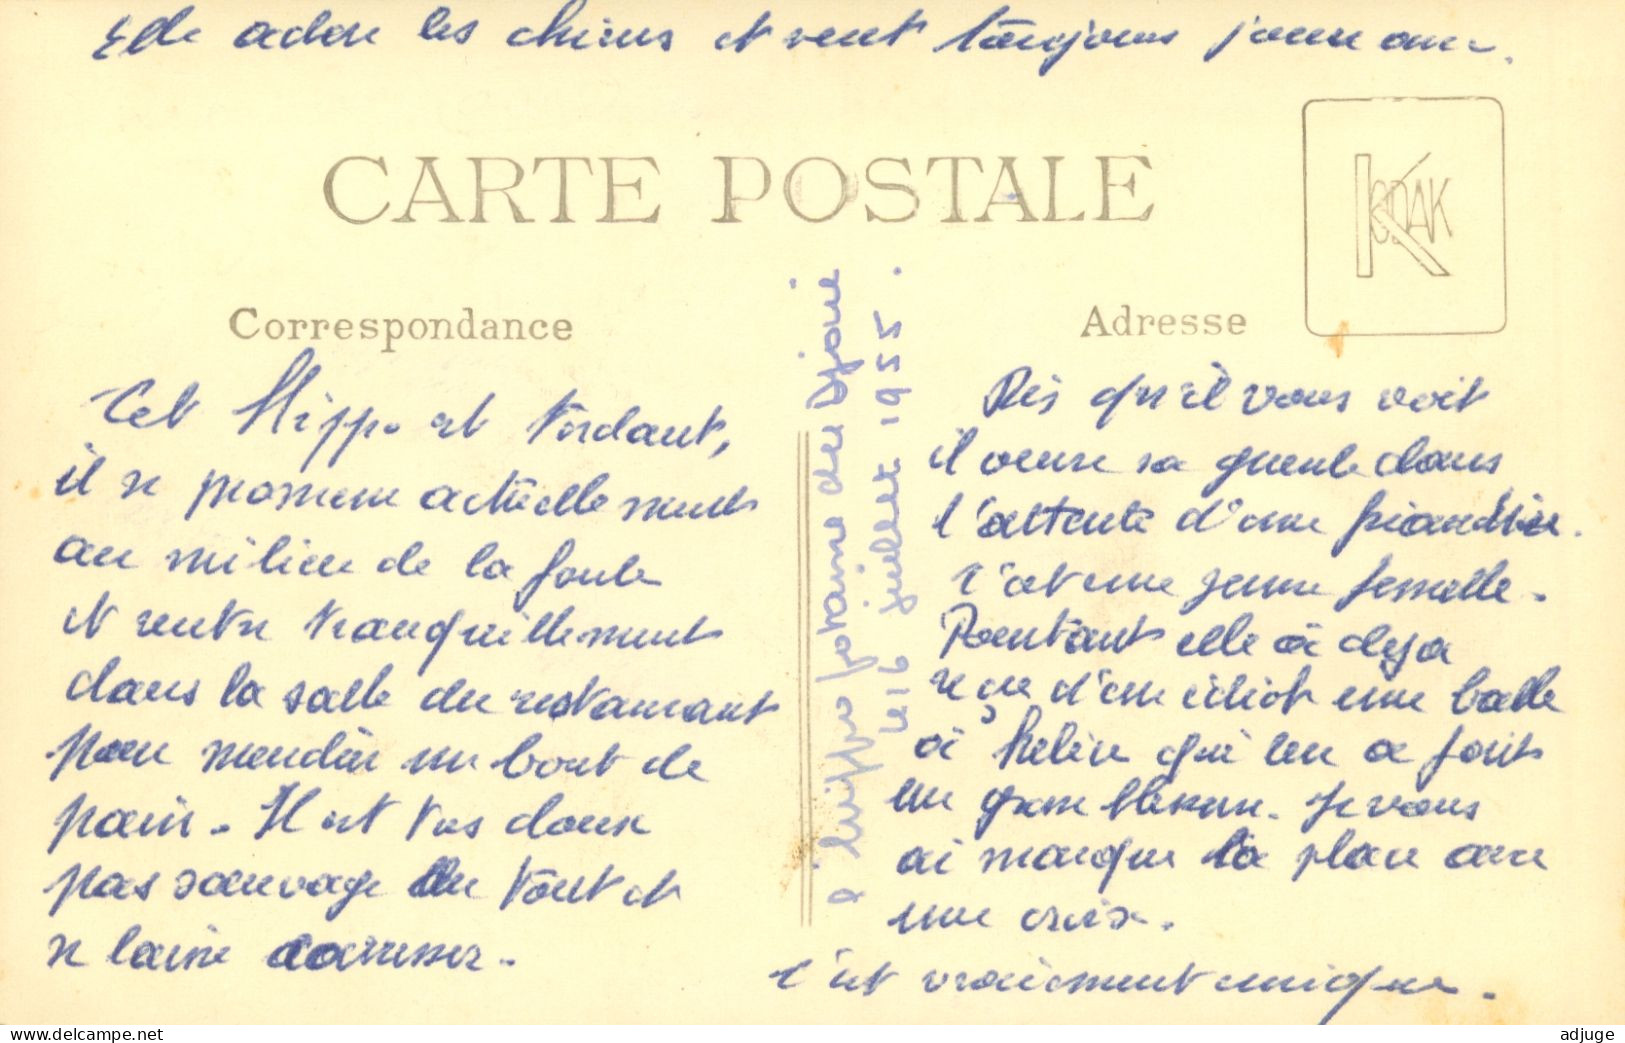 Elle adore les chiens et veut toujours jouer avec.
CARTE POSTALE
KODAK
Correspondance
Adresse
Cet Hippo est tordant,
il se promene actuellement
au milieu de la foule
et rentre tranquillement
dans la salle du restaurant
pour mendier un bout de
pain. Il est très doux
pas sauvage du tout et
se laisse caresser.
L'hippopotame du Djoué
le 16 juillet 1955.
Dès qu'il vous voit
il ouvre sa gueule dans
l'attente d'une friandise.
C'est une jeune femelle.
Pourtant elle a deja
reçu d'un idiot une balle
à hélice qui lui a fait
un grosse blessure. Je vous
ai marqué la place avec
une croix.
C'est vraiment unique.
adjuge